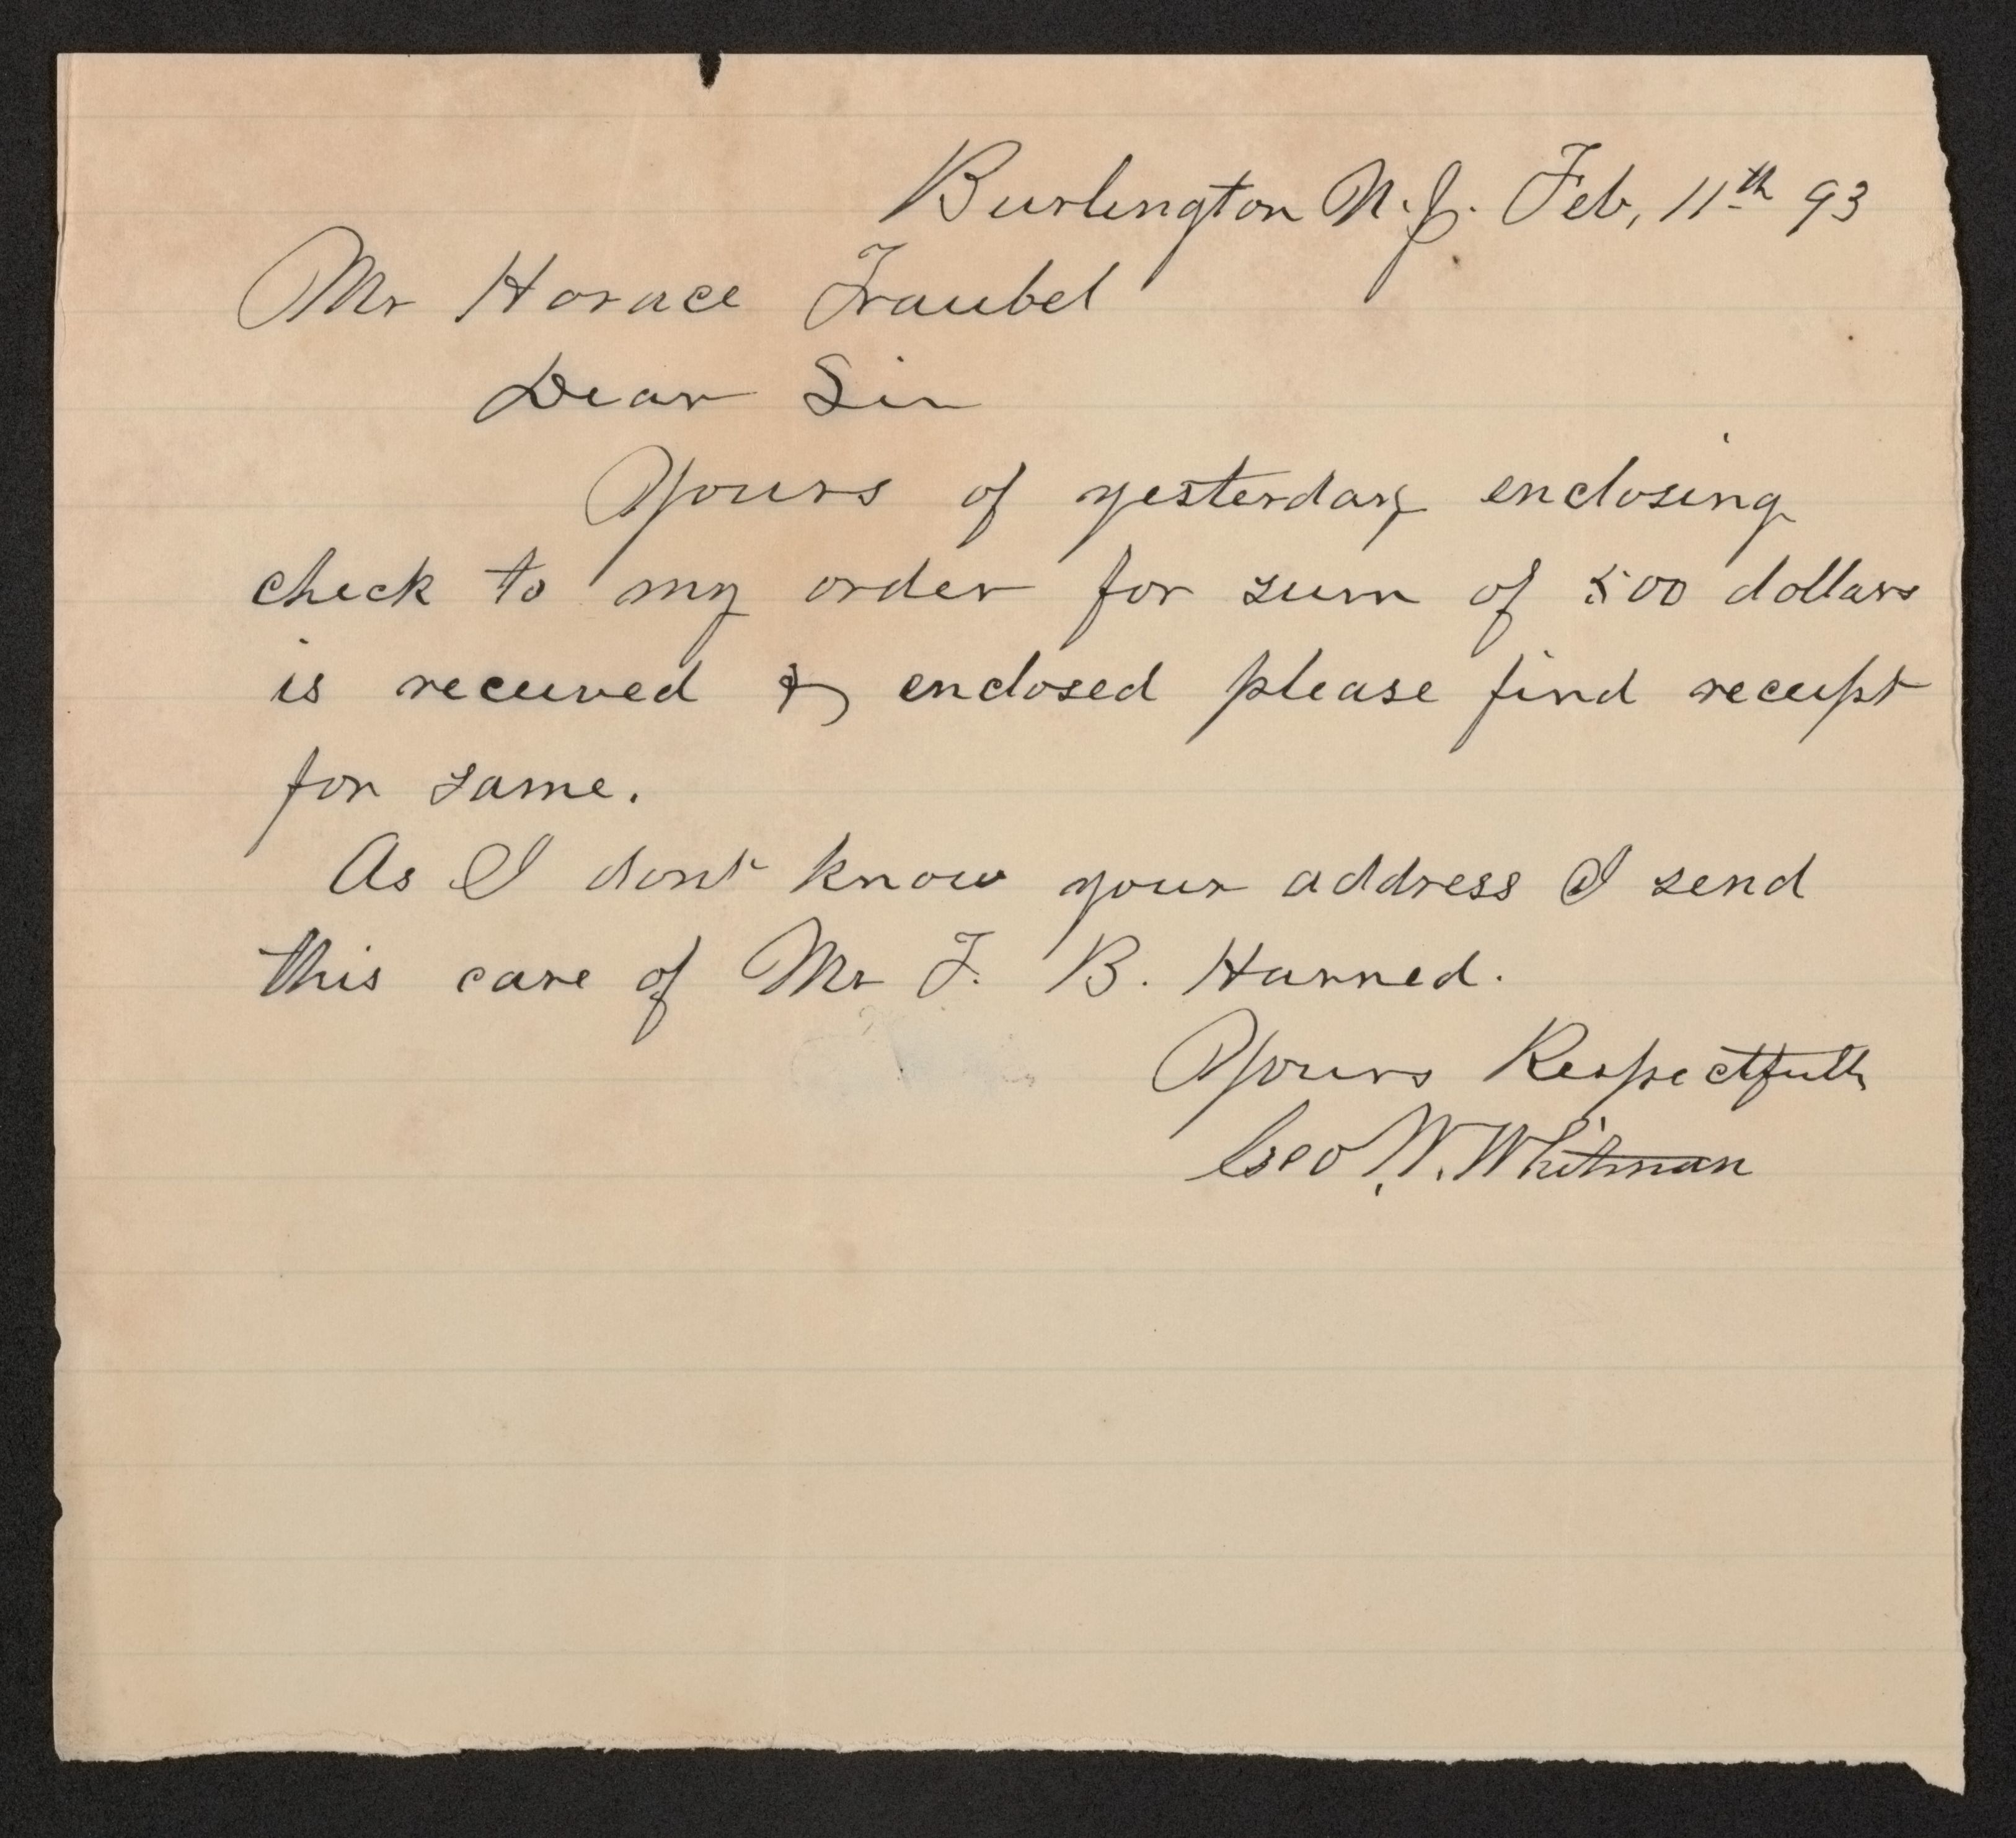 Burlington N.J. Feb, 11th 93
Mr Horace Traubel
Dear Sir
Yours of yesterday enclosing
check to my order for sum of 500 dollars
is received & enclosed please find receipt
for same.
As I dont know your address I send
this care of Mr T. B. Harned.
Yours Respectfully
Geo W. Whitman